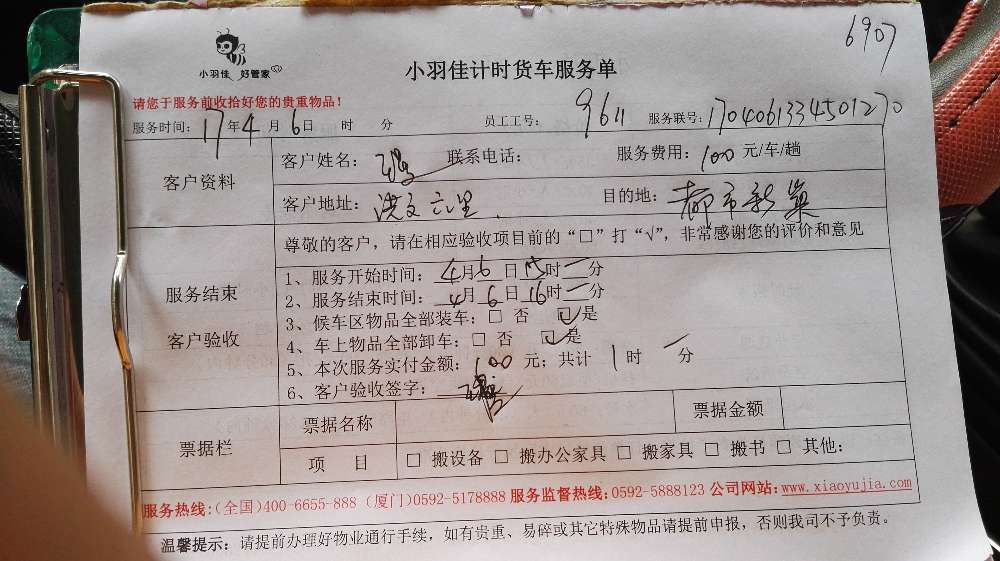 6907
小羽佳 好管家
小羽佳计时货车服务单
请您于服务前收拾好您的贵重物品！
服务时间：17年4月6日 时 分 员工工号：9611 服务联号：1704061334501270
客户资料
客户姓名： 联系电话： 服务费用：100元/车/趟
客户地址：洪文六里. 目的地：都市新巢
尊敬的客户，请在相应验收项目前的“□”打“√”，非常感谢您的评价和意见
服务结束
客户验收
1、服务开始时间：4月6日15时一分
2、服务结束时间：4月6日16时一分
3、候车区物品全部装车：□ 否 ☑是
4、车上物品全部卸车：□ 否 ☑是
5、本次服务实付金额：100元；共计 1时 一分
6、客户验收签字：
票据栏
票据名称 票据金额
项 目 □ 搬设备 □ 搬办公家具 □ 搬家具 □ 搬书 □ 其他：
服务热线:(全国)400-6655-888 (厦门)0592-5178888 服务监督热线:0592-5888123 公司网站:www.xiaoyujia.com
温馨提示：请提前办理好物业通行手续，如有贵重、易碎或其它特殊物品请提前申报，否则我司不予负责。